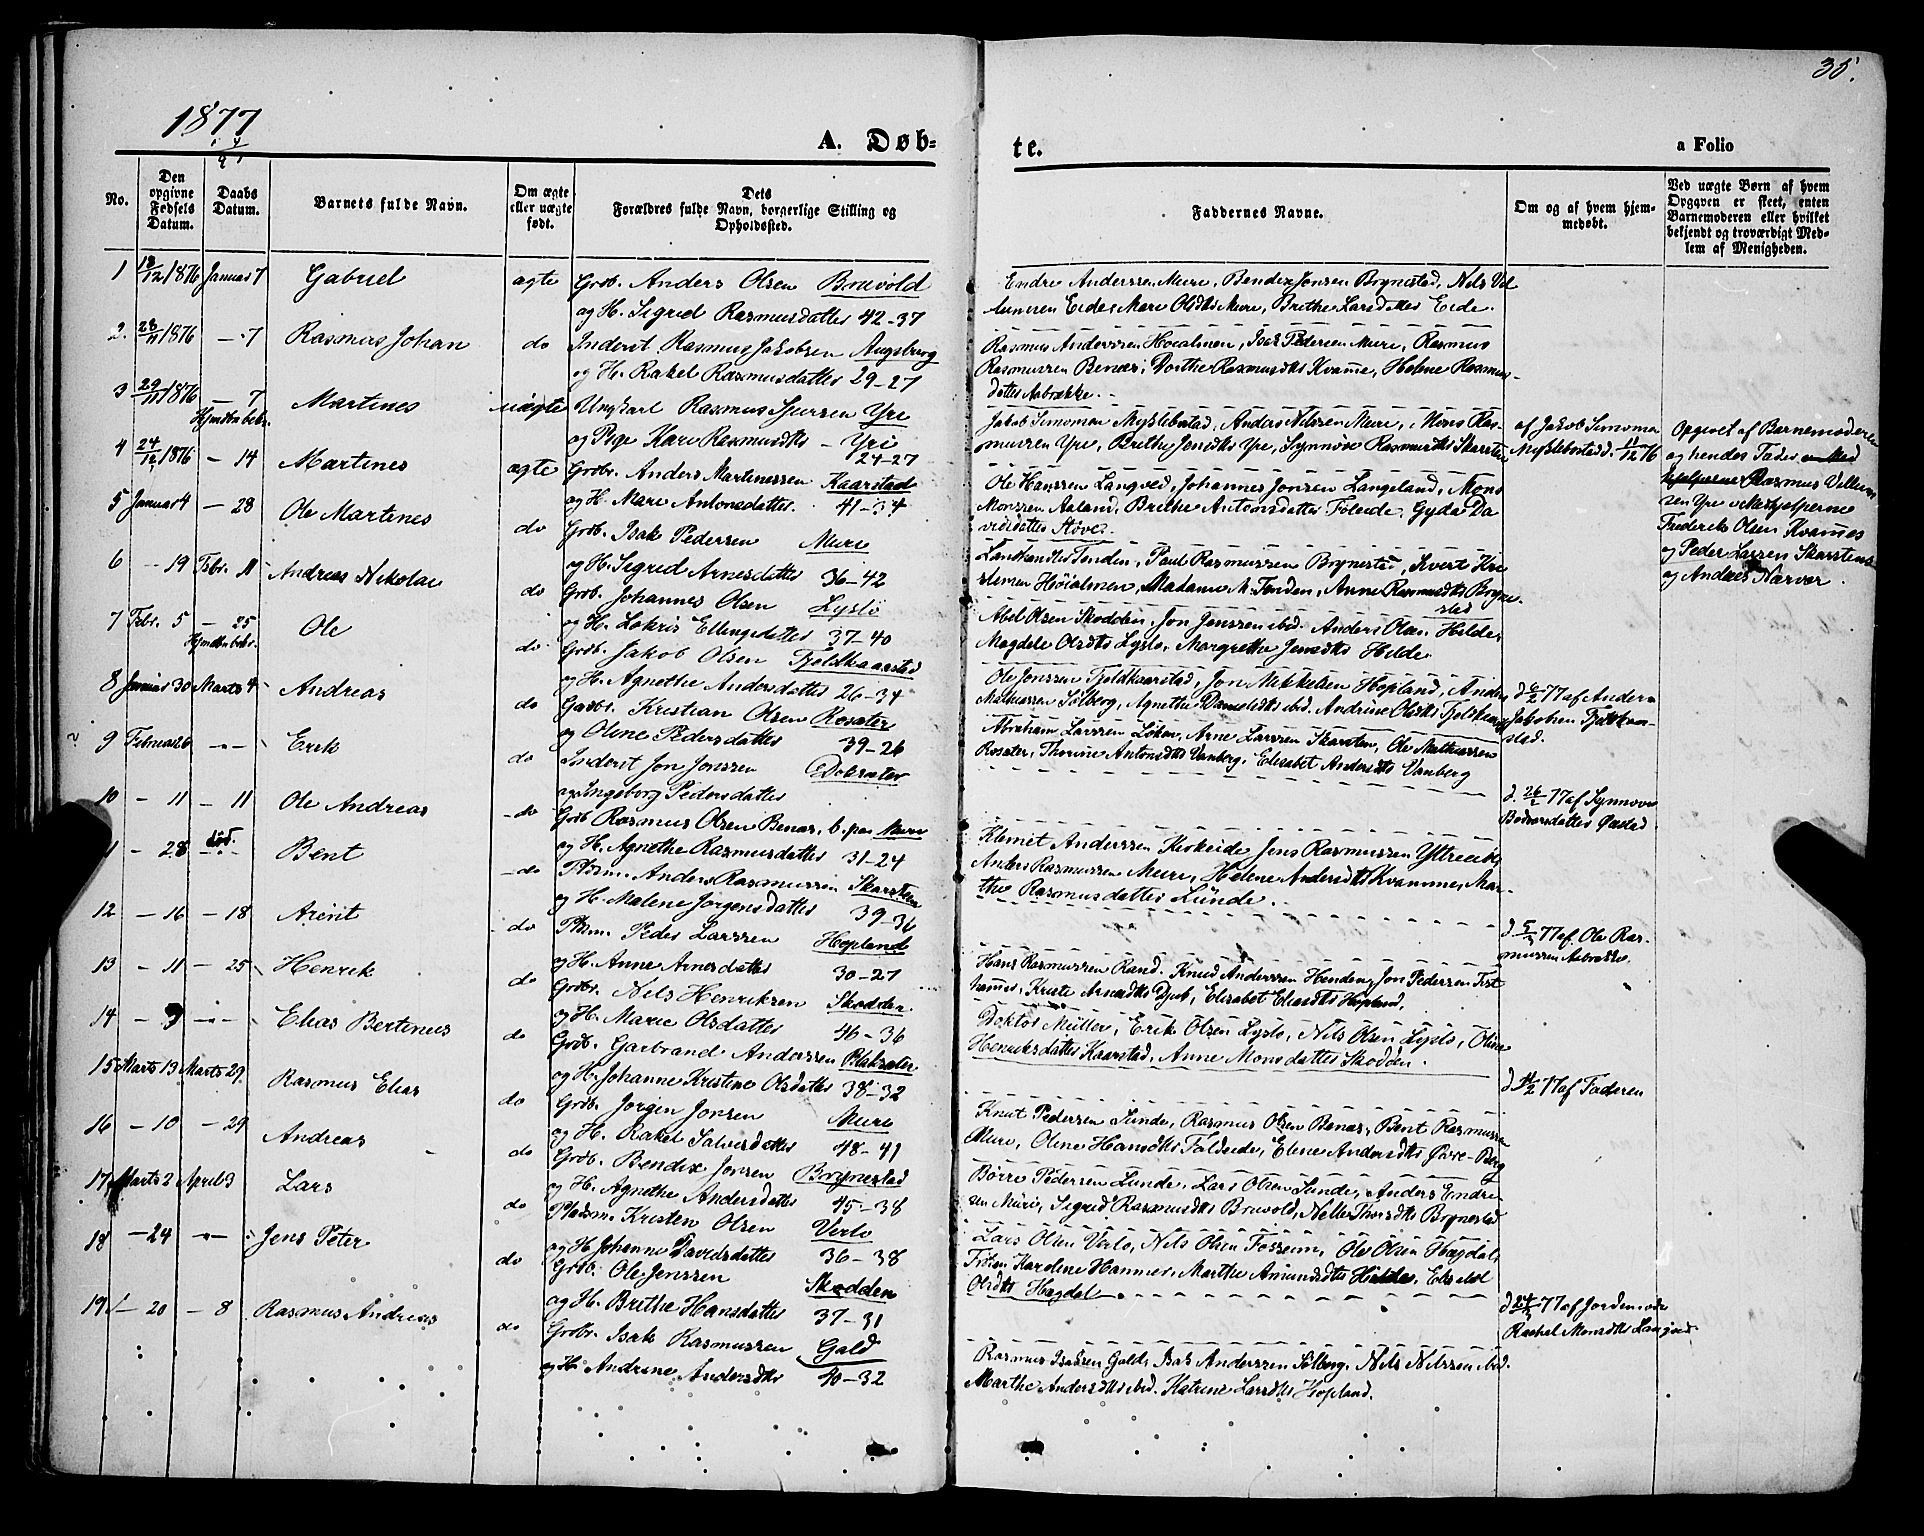 35.
1877
A. Døb-
te.
a Folio
No.
Den opgivne Fødsels Datum.
Daabs Datum.
Barnets fulde Navn.
Om ægte eller uægte født.
Dets Forældres fulde Navn, borgerlige Stilling og Opholdssted.
Faddernes Navne.
Om og af hvem hjemmedøbt.
Ved uægte Børn af hvem Opgaven er skeet, enten Barnemoderen eller hvilket bekjendt og troværdigt Medlem af Menigheden.
1 18/12 1876 Januar 7 Gabriel ægte Grdb. Anders Olsen Bruvold
og H. Sigrid Rasmusdatter 42-37
Endre Anderssen Muri, Bendix Jonsen Brynestad, Nils
Eide, Mari Olsdtr Muri, Brithe Larsdatter Eide.
2. 28/11 1876 - 7 Rasmus Johan do Inderst Rasmus Jakobsen Augsburg
og H. Rakel Rasmusdatter 29-27
Rasmus Anderssen Hoialmen, Isak Pedersen Muri, Rasmus
Rasmussen Benæs, Dorthe Rasmusdtr Kvamme, Helene Rasmus-
datter Aabrække.
3 29/11 1876 - 7 Hjmdbn bekr. Martines uægte Ungkarl Rasmus Sjursen Yri
og Pige Kari Rasmusdtr - Yri
24-27
Jakob Simonsen Myklebostad, Anders Nilsen Muri, Mons Ras-
mussen Yri, Brithe Jonsdtr Yri, Synnøve Rasmusdtr Skarsten
af Jakob Simonsen
Myklebostad d. 11/12 76
Opgivet af Barnemoderen
og hendes Fader
Rasmus
sen Yri
Frederik Olsen Kvames
og Peder Larsen Skarstens
og Andres Narver.
4 24/12 1876 - 14 Martines ægte Grdbr. Anders Martinessen Kaarstad
og H. Mari Antonsdatter 41-34
Ole Hanssen Langvad, Johannes Jonsen Langeland, Mons
Monssen Aaland, Brithe Antonsdatter Foleide, Gyda Da
vidsdatter Støve.
5 Januar 4 - 28 Ole Martines do Grdb. Isak Pedersen Muri
og H. Sigrid Arnesdatter 36-42
Landhandler Tenden, Paul Rasmussen Brynestad, Sivert Kri
stensen Hoialmen, Madame M. Tenden, Anne Rasmusdtr Bryne-
stad
6 - 19 Febr. 11 Andreas Nikolai do Grdb. Johannes Olsen Lyslo
og H. Lokris Ellingsdatter 37-40
Abel Olsen Skodden, Jon Jonssen ibid. Anders Olsen Hilde,
Magdele Olsdtr Lyslo, Margrethe Jensdtr Hilde.
7 Febr. 5 - 25 Hjmdbn bekr. Ole do Grdb. Jakob Olsen Fjeldkaarstad
og H. Agnethe Andersdatter 26-34
Ole Jonssen Fjeldkaarstad, Jon Mikkelsen Hopland, Anders
Mathiassen Solberg, Agnethe Danieldtr ibid. Andrine Olsdtr Fjeldkaarstad
d 6/2 77 af Anders
Jakobsen Fjeldkaa-
stad.
8 Januar 30 Marts 4 Andreas do Gardbr. Kristian Olsen Rosæter
og Oline Pedersdatter 39-26
Abraham Larssen Løken, Arne Larssen Skarsten, Ole Mathiassen
Rosæter, Thorine Antonsdtr Vanberg, Elisabet Andersdtr Vanberg
9 Februar 26 - " - Erik do Inderst Jon Jonssen Dokæter
og Ingeborg Pedersdatter
d. 26/2 77 af Synnøve
Bødvarsdatter Østad
10 - 11 - 11 Ole Andreas do Grdb Rasmus Olsen Benæs, b. paa Muri
og H. Agnethe Rasmusdatter 31-24
Klemet Anderssen Kirkeide, Jens Rasmussen Ytreeide,
Anders Rasmussen Muri, Helene Andersdtr Kvamme, Mar-
the Rasmusdatter Lunde.
11 - 28 død. - " - Bent do Pldsm. Anders Rasmussen Skarsten
og H. Malene Jørgensdatter 39-36
d 5/3 77 af Ole Ras-
mussen Aabrække.
12 - 16 - 18 Arent do Pldsm. Peder Larssen Hopland
og H. Anne Arnesdatter 30-27
Hans Rasmussen Rand. Knud Anderssen Henden, Jon Pedersen Fist
hammer, Kristi Arnesdtr Djub, Elisabet Eliasdtr Hopland.
13 - 11 - 25 Henrik do Grdbr. Nils Henriksen Skodden
og H. Marie Olsdatter 46-36
Doktor Müller, Erik Olsen Lyslo, Nils Olsen Lyslo, Oline
Henriksdatter Kaarstad, Anne Monsdatter Skodden.
14 - 9 - " - Elias Bertinus do Grdb. Garbrand Anderssen Blaksæter
og H. Johanne Kristine Olsdatter 38-32
d 11/2 77 af Faderen
15 Marts 13 Marts 29 Rasmus Elias do Grdb. Jørgen Jonsen Muri
og H. Rakel Salversdatter 48-41
Knut Pedersen Sunde, Rasmus Olsen Benæs, Bent Rasmussen
Muri, Oline Hansdtr Foldeide, Elene Andersdtr Øvre-Berg
16 - 10 - 29 Andreas do Grdb. Bendix Jonsen Brynestad
og H. Agnethe Andersdatter 45-38
Børre Pedersen Lunde, Lars Olsen Sunde, Anders Endre
sen Muri, Sigrid Rasmusdtr Bruvold, Nelle Thorsdtr Brynestad
17 Marts 2 April 3 Lars do Pladsm. Kristen Olsen Verlo
og H. Johanne Davidsdatter 36-38
Lars Olsen Verlo, Nils Olsen Fosseim, Ole Olsen Hægdal,
Frøken Karoline Hammer, Marthe Amundsdtr Hilde, Elisabet
Olsdtr Hægdal.
18 - 24 - " - Jens Peter do Grdb. Ole Jenssen Skodden
og H. Brithe Hansdatter 37-31
d 24/3 77 af Jordemoder
Rachel Monsdtr Langved
19 - 20 - 8 Rasmus Andreas do Grdbr. Isak Rasmussen Gald
og H. Andrine Andersdtr 40-32
Rasmus Isaksen Gald, Isak Anderssen Solberg, Nils Nilssen ibid.
Marthe Andersdtr ibid. Katrine Larsdtr Hopland.